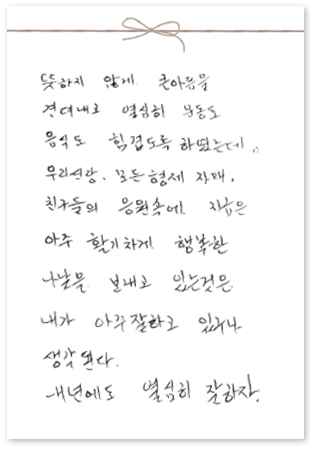 뜻하지 않게 큰아픔을
견뎌내고 열심히 운동도
음식도 힘겹도록 하였는데,,
우리신랑, 모든형제 자매,
친구들의 응원속에. 지금은
아주 활기차게 행복한
나날을 보내고 있는것은
내가 아주잘하고 있구나
생각 된다.
내년에도 열심히 잘하자.